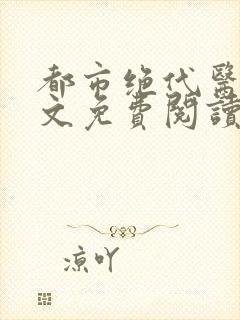 都市绝代醫
文免費閱讀
凉吖